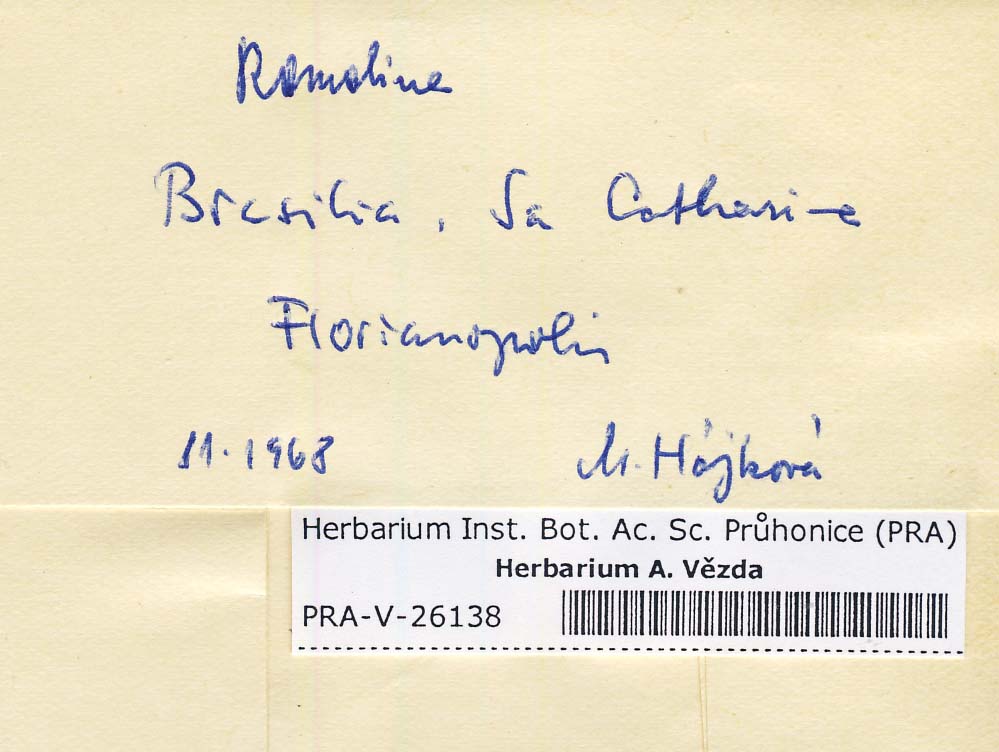 Ramalina
Brasilia, Sa Catharina
Florianopolis
11.1968
M. Hájková
Herbarium Inst. Bot. Ac. Sc. Průhonice (PRA)
Herbarium A. Vězda
PRA-V-26138